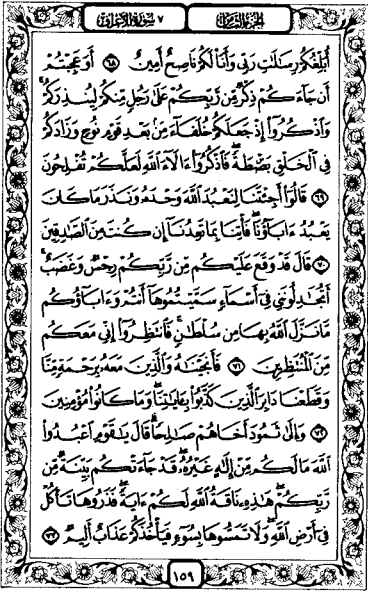 الجزء الثامن ٧ سورة الأعراف
أُبَلِّغُكُمْ رِسَٰلَٰتِ رَبِّى وَأَنَا۠ لَكُمْ نَاصِحٌ أَمِينٌ ٦٨ أَوَعَجِبْتُمْ
أَن جَآءَكُمْ ذِكْرٌ مِّن رَّبِّكُمْ عَلَىٰ رَجُلٍ مِّنكُمْ لِيُنذِرَكُمْ ۚ
وَٱذْكُرُوٓا۟ إِذْ جَعَلَكُمْ خُلَفَآءَ مِنۢ بَعْدِ قَوْمِ نُوحٍ وَزَادَكُمْ
فِى ٱلْخَلْقِ بَصْۜطَةً ۖ فَٱذْكُرُوٓا۟ ءَالَآءَ ٱللَّهِ لَعَلَّكُمْ تُفْلِحُونَ
٦٩ قَالُوٓا۟ أَجِئْتَنَا لِنَعْبُدَ ٱللَّهَ وَحْدَهُۥ وَنَذَرَ مَا كَانَ
يَعْبُدُ ءَابَآؤُنَا ۖ فَأْتِنَا بِمَا تَعِدُنَآ إِن كُنتَ مِنَ ٱلصَّٰدِقِينَ
٧٠ قَالَ قَدْ وَقَعَ عَلَيْكُم مِّن رَّبِّكُمْ رِجْسٌ وَغَضَبٌ ۖ
أَتُجَٰدِلُونَنِى فِىٓ أَسْمَآءٍ سَمَّيْتُمُوهَآ أَنتُمْ وَءَابَآؤُكُم
مَّا نَزَّلَ ٱللَّهُ بِهَا مِن سُلْطَٰنٍ ۚ فَٱنتَظِرُوٓا۟ إِنِّى مَعَكُم
مِّنَ ٱلْمُنتَظِرِينَ ٧١ فَأَنجَيْنَٰهُ وَٱلَّذِينَ مَعَهُۥ بِرَحْمَةٍ مِّنَّا
وَقَطَعْنَا دَابِرَ ٱلَّذِينَ كَذَّبُوا۟ بِـَٔايَٰتِنَا ۖ وَمَا كَانُوا۟ مُؤْمِنِينَ
٧٢ وَإِلَىٰ ثَمُودَ أَخَاهُمْ صَٰلِحًا ۗ قَالَ يَٰقَوْمِ ٱعْبُدُوا۟
ٱللَّهَ مَا لَكُم مِّنْ إِلَٰهٍ غَيْرُهُۥ ۖ قَدْ جَآءَتْكُم بَيِّنَةٌ مِّن
رَّبِّكُمْ ۖ هَٰذِهِۦ نَاقَةُ ٱللَّهِ لَكُمْ ءَايَةً ۖ فَذَرُوهَا تَأْكُلْ
فِىٓ أَرْضِ ٱللَّهِ ۖ وَلَا تَمَسُّوهَا بِسُوٓءٍ فَيَأْخُذَكُمْ عَذَابٌ أَلِيمٌ ٧٣
١٥٩